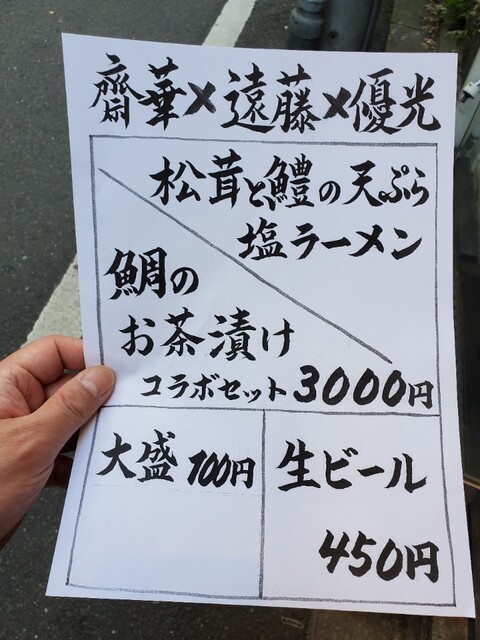 齋華×遠藤×優光
松茸と鱧の天ぷら
塩ラーメン
鯛の
お茶漬け
コラボセット 3000円
大盛 100円
生ビール
450円